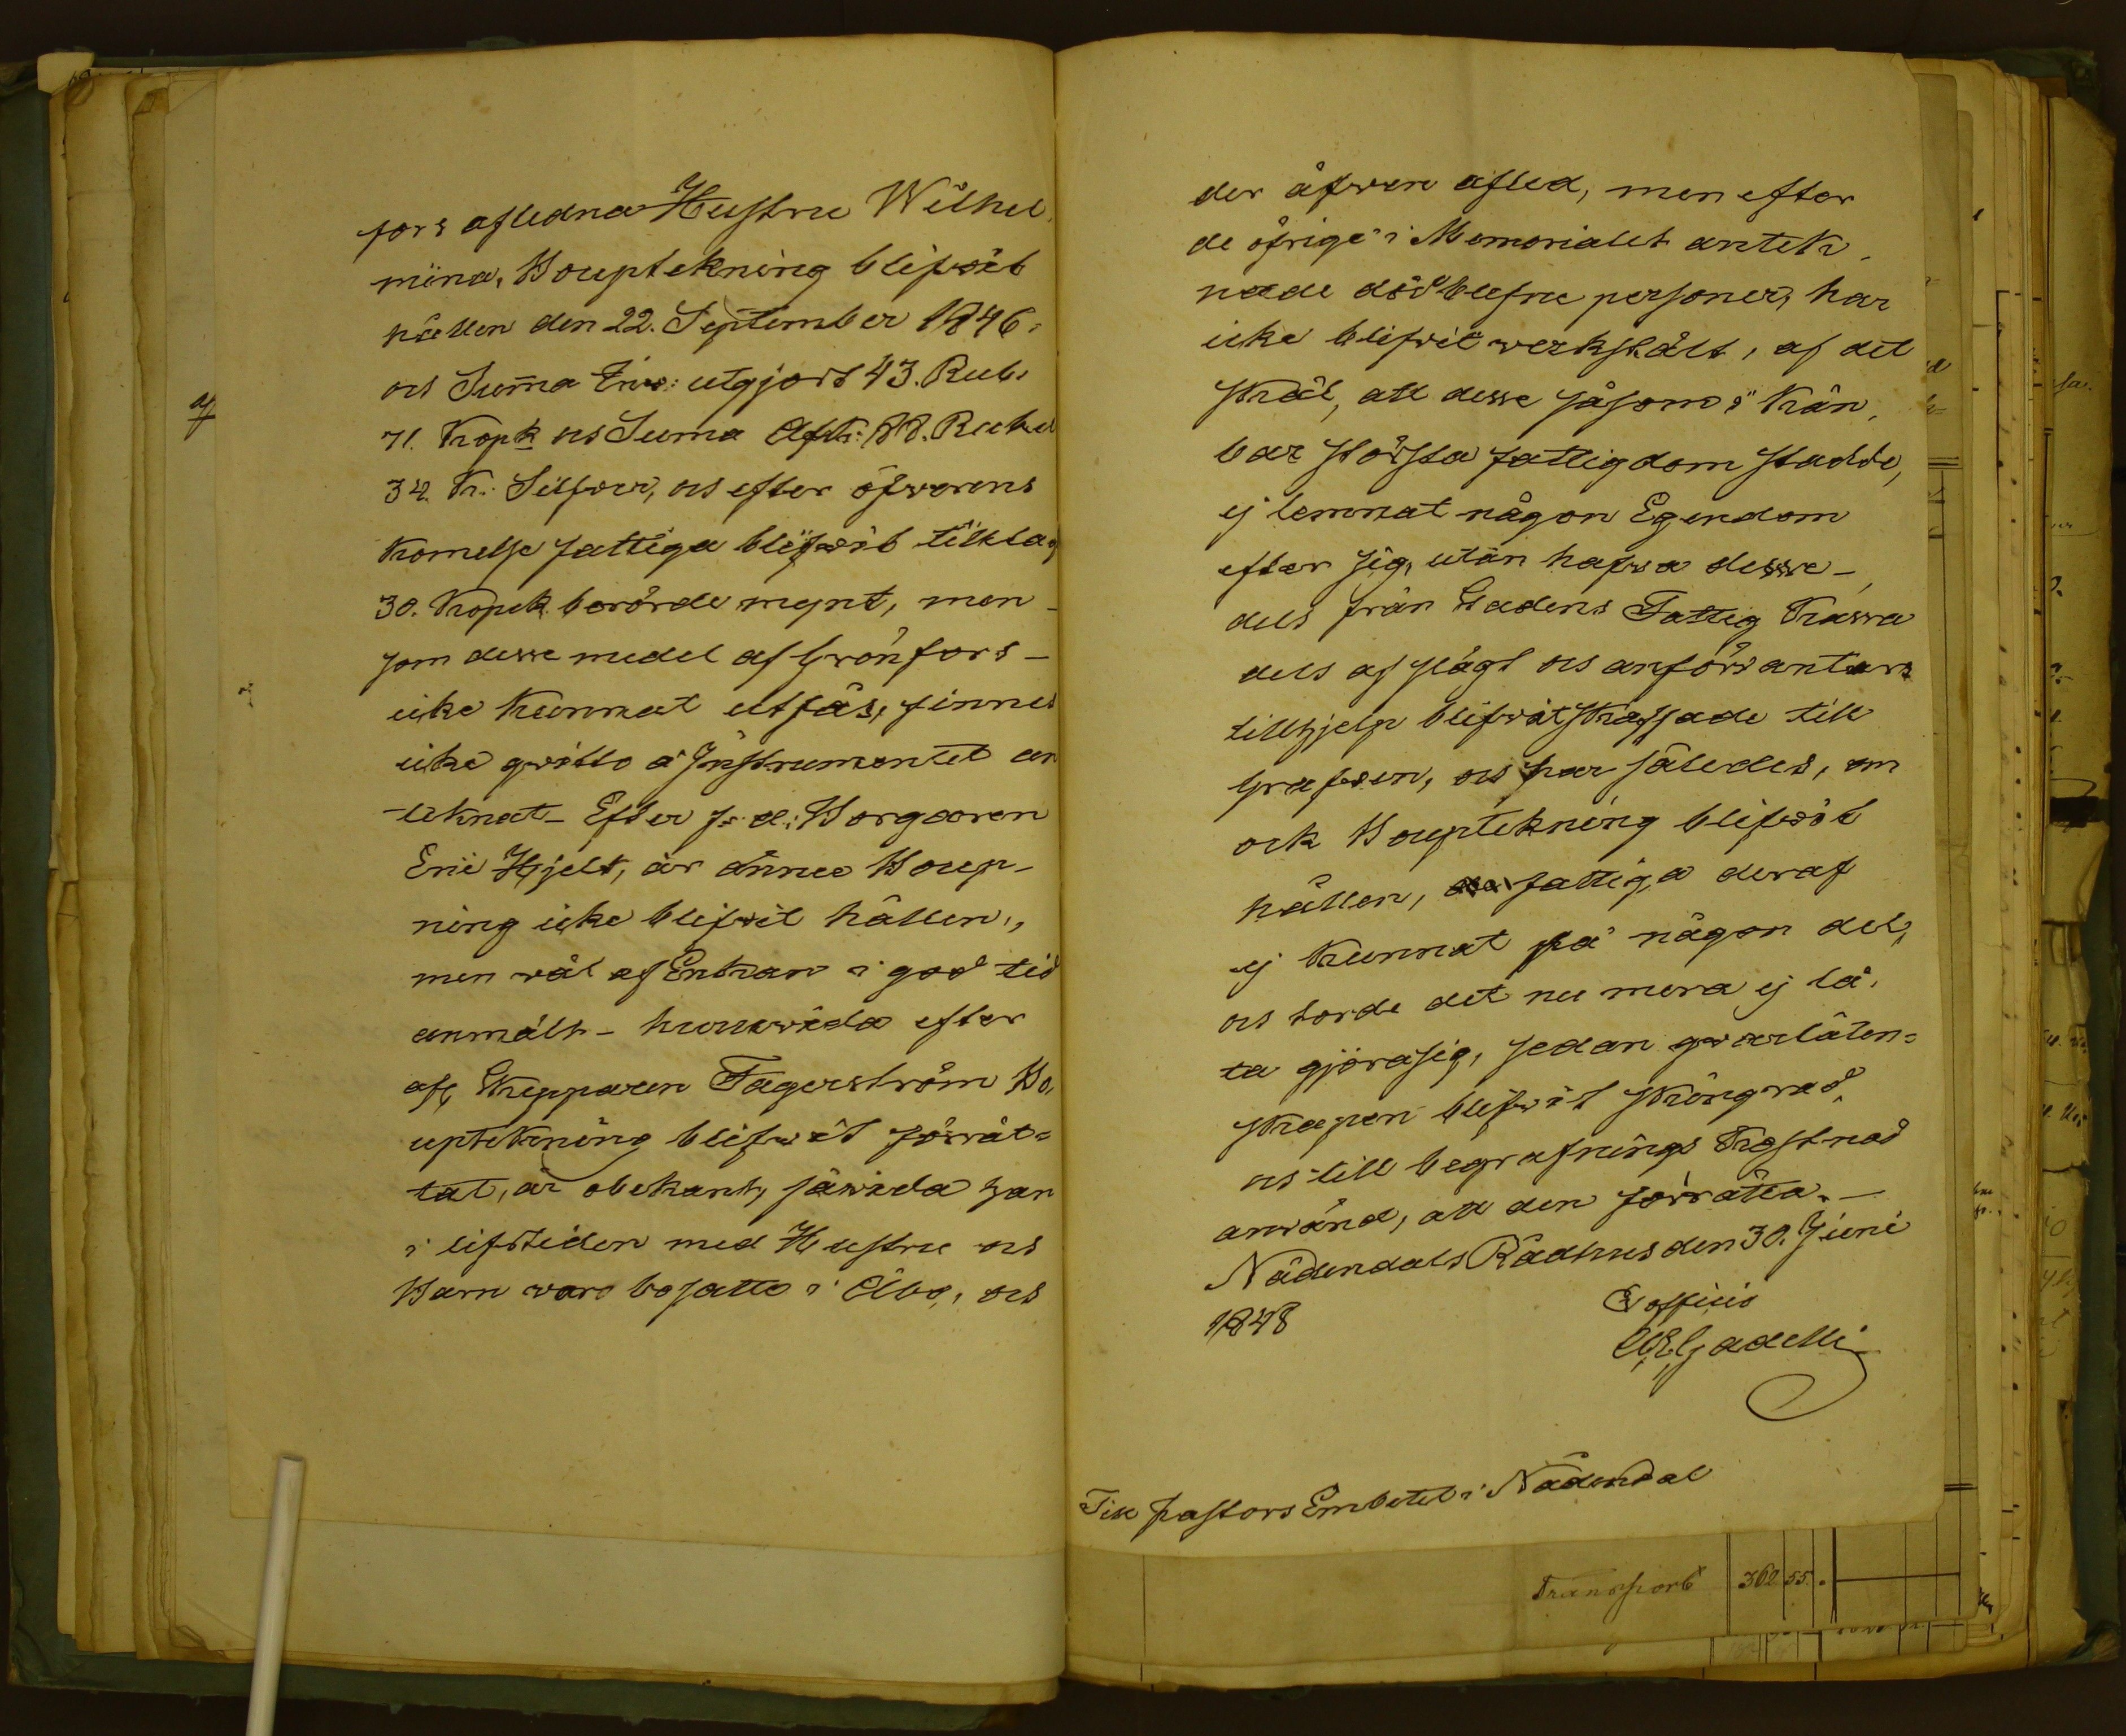 fors afledna Hustru Wilhel
mina, Bouptekning blifvit
hållen den 22. September 1846,
och Sum̅a Inv: utgjort 43. Rub.
71. Kopk och Sum̅a Afk: 88. Rubel
34. K: Silfver, och efter öfverens
komelse fattiga blifvit tillslag
30. Kopek berörde mynt, men
som desse medel af Grönfors
icke kunnat utfås, finnes
icke qvitto å Instrumentet an
teknat. Efter f: d: Borgaren
Eric Hjelt, är ännu Boup-
ning icke blifvit hållen,
men väl af Enkan i god tid
anmält. huruvida efter
afl. Skepparen Fagerström Bo,
uptekning blifvit förrät-
tat, är obekant, såvida han
i lifstiden med Hustru och
Barn varo bosatte i Åbo, och
der äfven afled, men efter
de öfrige i Memorialet antek
nade dödblefne personer, har
icke blifvit verkstält, af det
skäl, att desse såsom i kän,
bar största fattigdom stadde,
ej lemnat någon Egendom
efter sig, utan hafva desse
dels från Stadens Fattig Kassa
dels af slägt och anförvanters
tillhjelp blifvit skaffade till
grafven, och har således, om
ock Bouptekning blifvit
hållen, fattiga deraf
ej kunnat få någon del,
och torde det nu mera ej lå,
ta gjöra sig, sedan qvarlåten-
skapen blifvit skingrad
och till begrafnings Kostnad
använd, att den förrätta.
Nådendals Rådhus den 30. Juni
1848
Ex officio
Gadelli
Till Pastors Embetet i Nådendal
Transport 362 55.